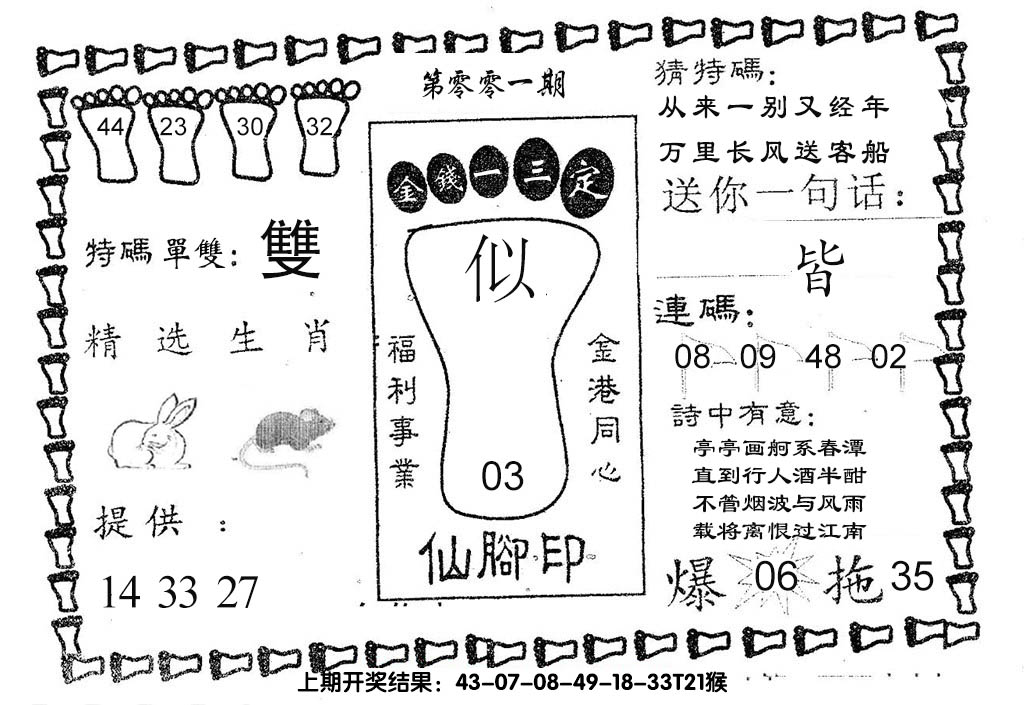 第零零一期
44 23 30 32
特碼單雙：雙
精选生肖
提供：
14 33 27
金錢一三定
似
福利事業
金港同心
03
仙腳印
猜特碼：
从来一别又经年
万里长风送客船
送你一句话：
皆
連碼：
08 09 48 02
詩中有意：
亭亭画舸系春潭
直到行人酒半酣
不管烟波与风雨
载将离恨过江南
爆 06 拖 35
上期开奖结果：43-07-08-49-18-33T21猴